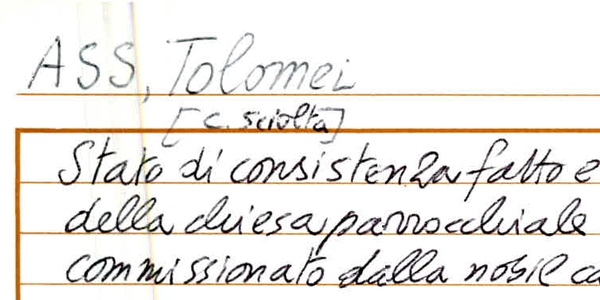 ASS, Tolomei
[c. sciolta]
Stato di consistenza fatto e
della chiesa parrocchiale
commissionato dalla nobil ca